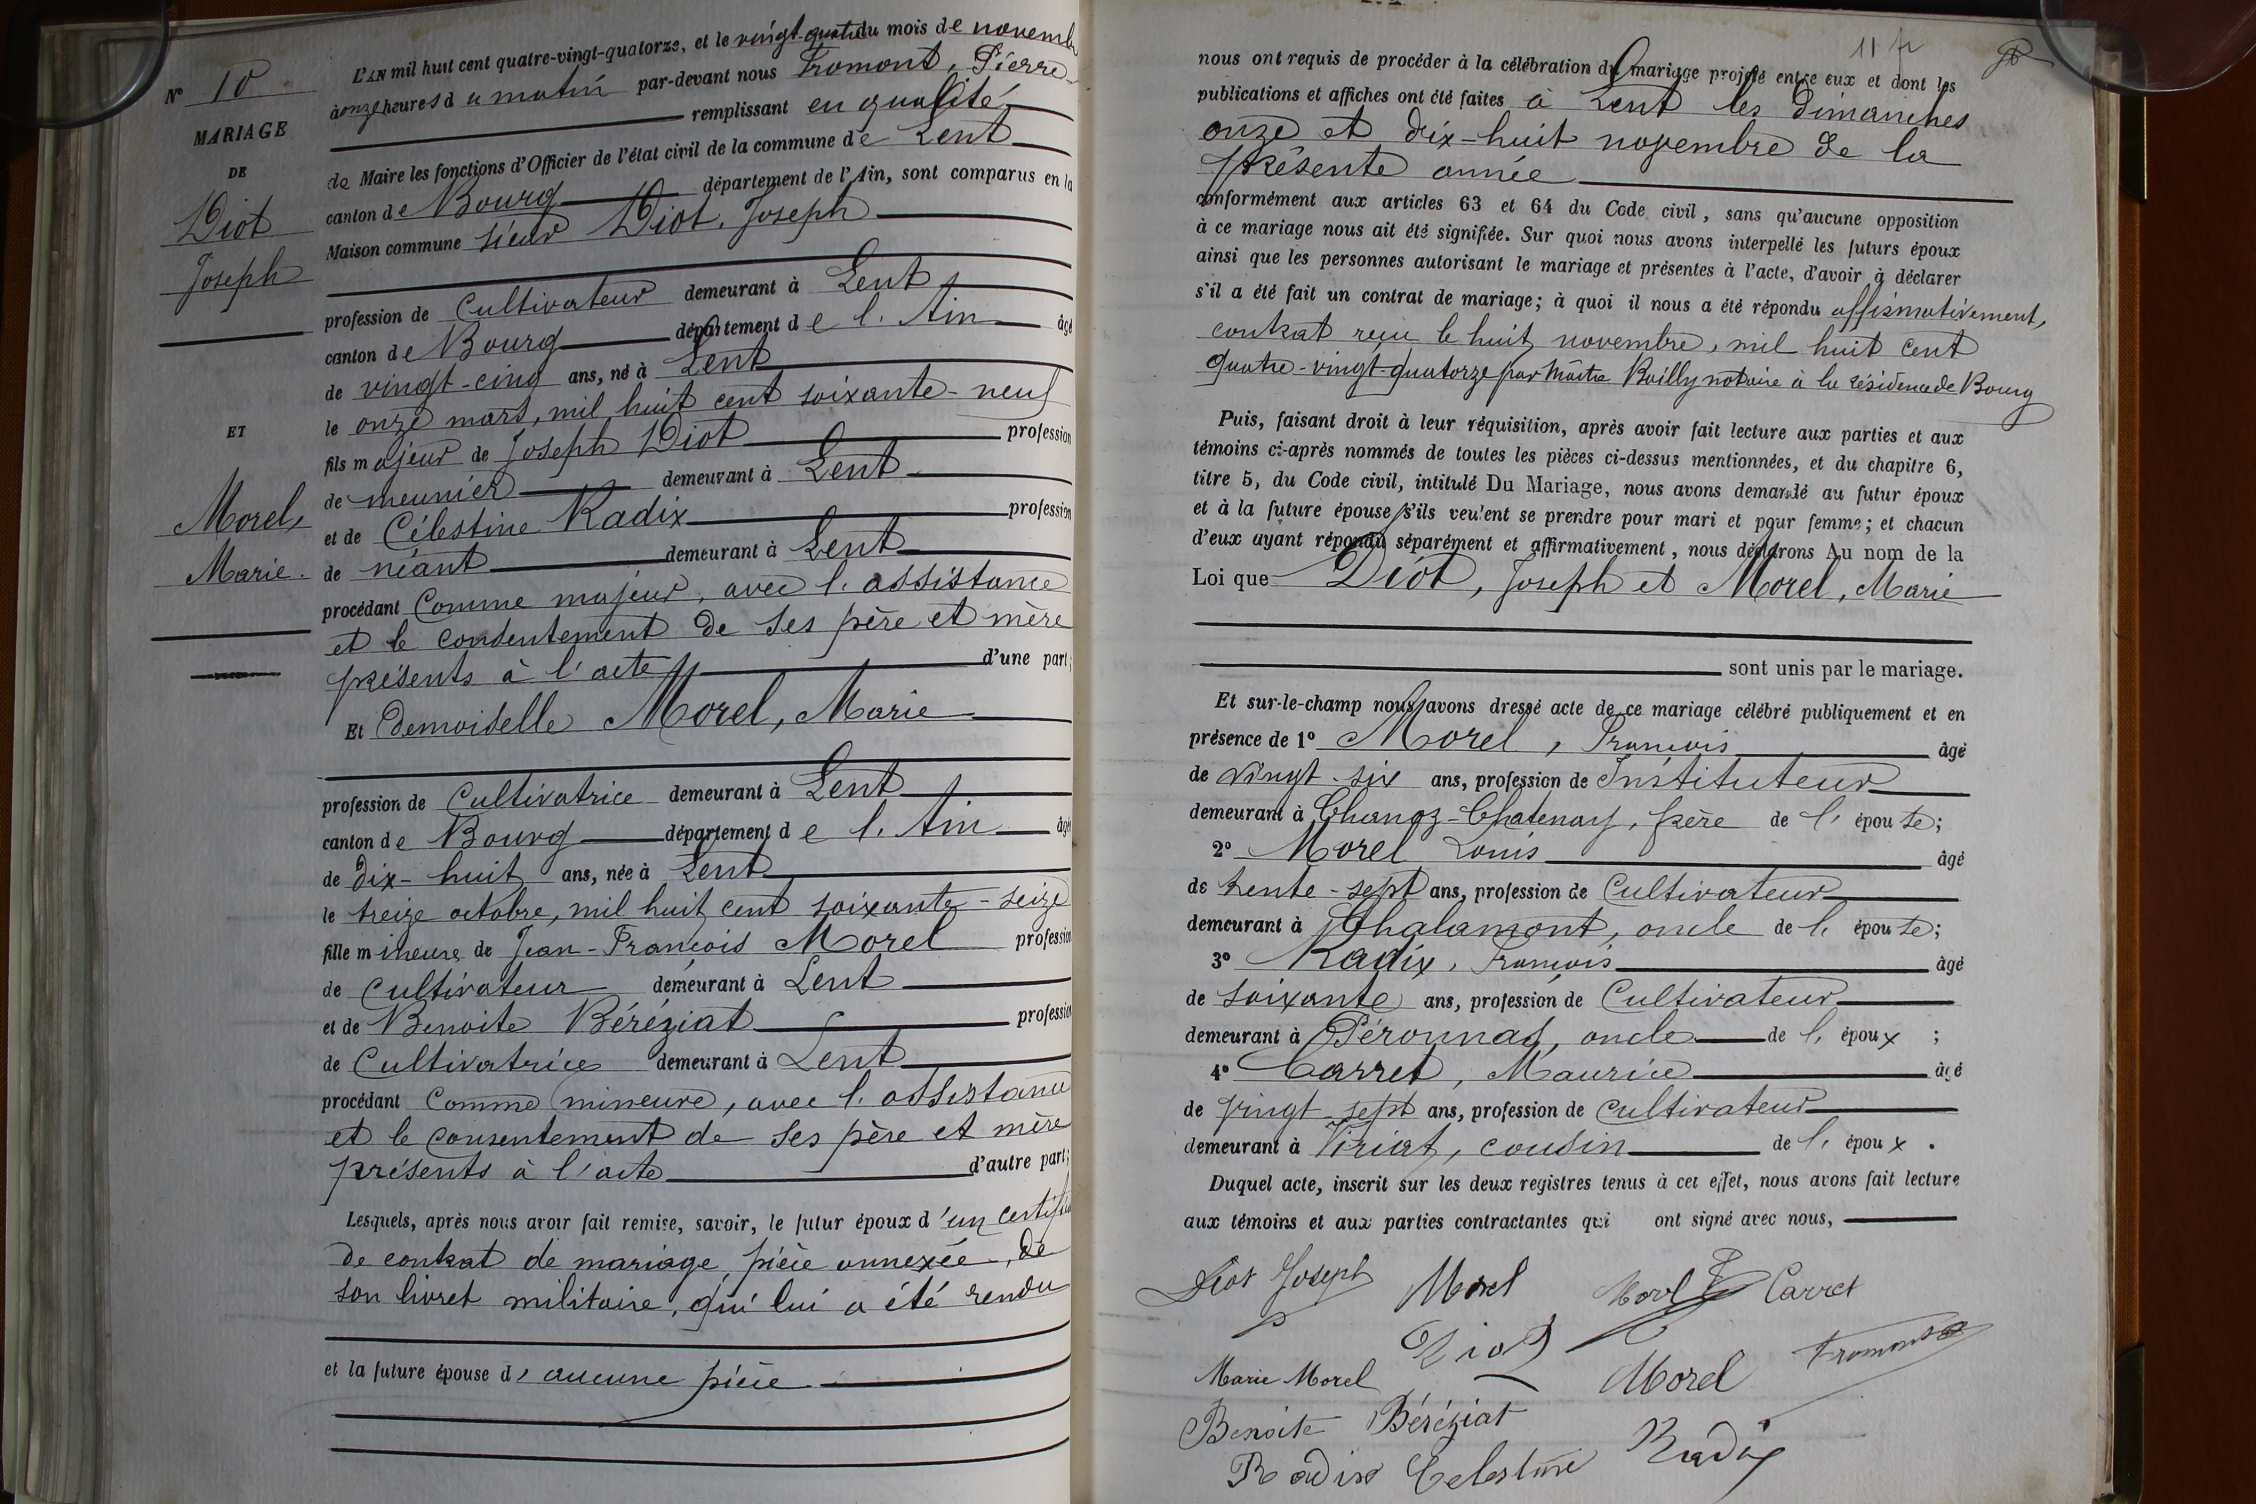 N° 10
MARIAGE
DE
Diot
Joseph
ET
Morel,
Marie.
L'AN mil huit cent quatre-vingt-quatorze, et le vingt-quatre du mois de novembre
à onze heures du matin par-devant nous Fromont, Pierre
remplissant en qualité
de Maire les fonctions d'Officier de l'état civil de la commune de Lent
canton de Bourg département de l'Ain, sont comparus en la
Maison commune sieur Diot, Joseph
profession de Cultivateur demeurant à Lent
canton de Bourg département de l'Ain âgé
de vingt-cinq ans, né à Lent
le onze mars, mil huit cent soixante-neuf
fils majeur de Joseph Diot profession
de meunier demeurant à Lent
et de Célestine Radix profession
de néant demeurant à Lent
procédant Comme majeur, avec l'assistance
et le consentement de ses père et mère
présents à l'acte d'une part;
Et Demoiselle Morel, Marie
profession de Cultivatrice demeurant à Lent
canton de Bourg département de l'Ain âgée
de dix-huit ans, née à Lent
le treize octobre, mil huit cent soixante-seize
fille mineure de Jean-François Morel profession
de Cultivateur demeurant à Lent
et de Benoite Béréziat profession
de Cultivatrice demeurant à Lent
procédant Comme mineure, avec l'assistance
et le consentement de ses père et mère
présents à l'acte d'autre part;
Lesquels, après nous avoir fait remise, savoir, le futur époux d'un certificat
de contrat de mariage, pièce annexée, de
son livret militaire, qui lui a été rendu
et la future épouse d'aucune pièce
11 fr
nous ont requis de procéder à la célébration du mariage projeté entre eux et dont les
publications et affiches ont été faites à Lent les dimanches
onze et dix-huit novembre de la
présente année
conformément aux articles 63 et 64 du Code civil, sans qu'aucune opposition
à ce mariage nous ait été signifiée. Sur quoi nous avons interpellé les futurs époux
ainsi que les personnes autorisant le mariage et présentes à l'acte, d'avoir à déclarer
s'il a été fait un contrat de mariage; à quoi il nous a été répondu affirmativement,
contrat reçu le huit novembre, mil huit cent
quatre-vingt-quatorze par Maître Bailly notaire à la résidence de Bourg
Puis, faisant droit à leur réquisition, après avoir fait lecture aux parties et aux
témoins ci-après nommés de toutes les pièces ci-dessus mentionnées, et du chapitre 6,
titre 5, du Code civil, intitulé Du Mariage, nous avons demandé au futur époux
et à la future épouse s'ils veulent se prendre pour mari et pour femme; et chacun
d'eux ayant répondu séparément et affirmativement, nous déclarons Au nom de la
Loi que Diot, Joseph et Morel, Marie
sont unis par le mariage.
Et sur-le-champ nous avons dressé acte de ce mariage célébré publiquement et en
présence de 1° Morel, François âgé
de vingt-six ans, profession de Instituteur
demeurant à Chanoz-Chatenay, frère de l'épouse;
2° Morel Louis âgé
de trente-sept ans, profession de Cultivateur
demeurant à Chalamont, oncle de l'épouse;
3° Radix, François âgé
de soixante ans, profession de Cultivateur
demeurant à Péronnas, oncle de l'époux;
4° Carret, Maurice âgé
de vingt-sept ans, profession de Cultivateur
demeurant à Viriat, cousin de l'époux.
Duquel acte, inscrit sur les deux registres tenus à cet effet, nous avons fait lecture
aux témoins et aux parties contractantes qui ont signé avec nous,
Diot Joseph Morel Morel Carret
Diot Fromont
Marie Morel Morel
Benoite Béréziat
Radix Celestine Radix